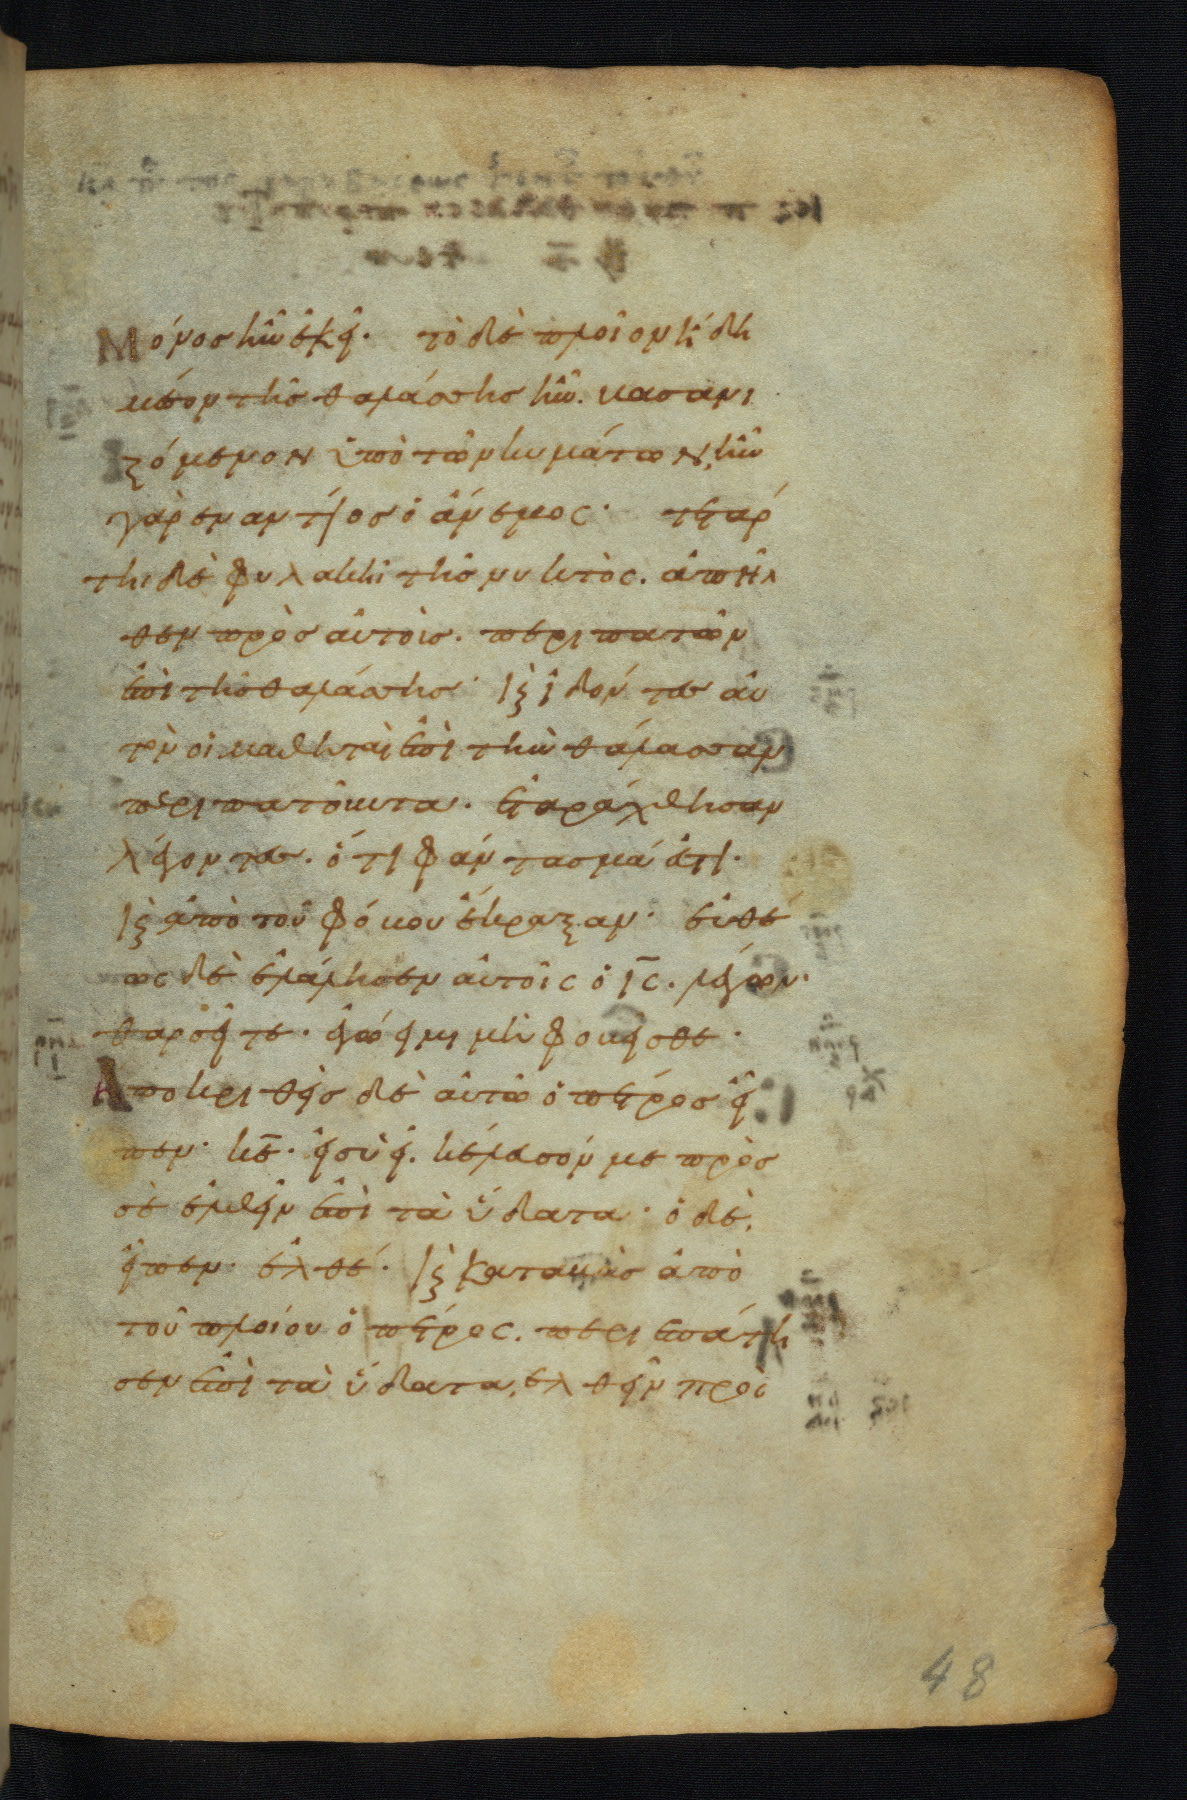 Μόνος ἦν ἐκεῖ. τὸ δὲ πλοῖον ἤδη
μέσον τῆς θαλάσσης ἦν. βασανι
ζόμενον ὑπὸ τῶν κυμάτων, ἦν
γὰρ ἐναντίος ὁ ἄνεμος. τετάρ
τηι δὲ φυλακῆι τῆς νυκτὸς. ἀπῆλ
θεν πρὸς αὐτοὺς. περιπατῶν
ἐπὶ τῆς θαλάσσης. καὶ ἰδόντες αὐ
τὸν οἱ μαθηταὶ ἐπὶ τὴν θάλασσαν
περιπατοῦντα. ἐταράχθησαν
λέγοντες. ὅτι φάντασμά ἐστι.
καὶ ἀπὸ τοῦ φόβου ἔκραξαν. εὐθέ
ως δὲ ἐλάλησεν αὐτοῖς ὁ ΙϹ. λέγων.
θαρσεῖτε. ἐγώ εἰμι μὴ φοβεῖσθε.
Ἀποκριθεὶς δὲ αὐτῶ ὁ πέτρος εἶ
πεν. κε. εἰ σὺ εἶ. κέλευσόν με πρὸς
σὲ ἐλθεῖν ἐπὶ τὰ ὕδατα. ὁ δὲ,
εἶπεν. ἐλθέ. καὶ καταβὰς ἀπὸ
τοῦ πλοίου ὁ πέτρος. περιεπάτη
σεν ἐπὶ τὰ ὕδατα, ἐλθεῖν πρὸς
48